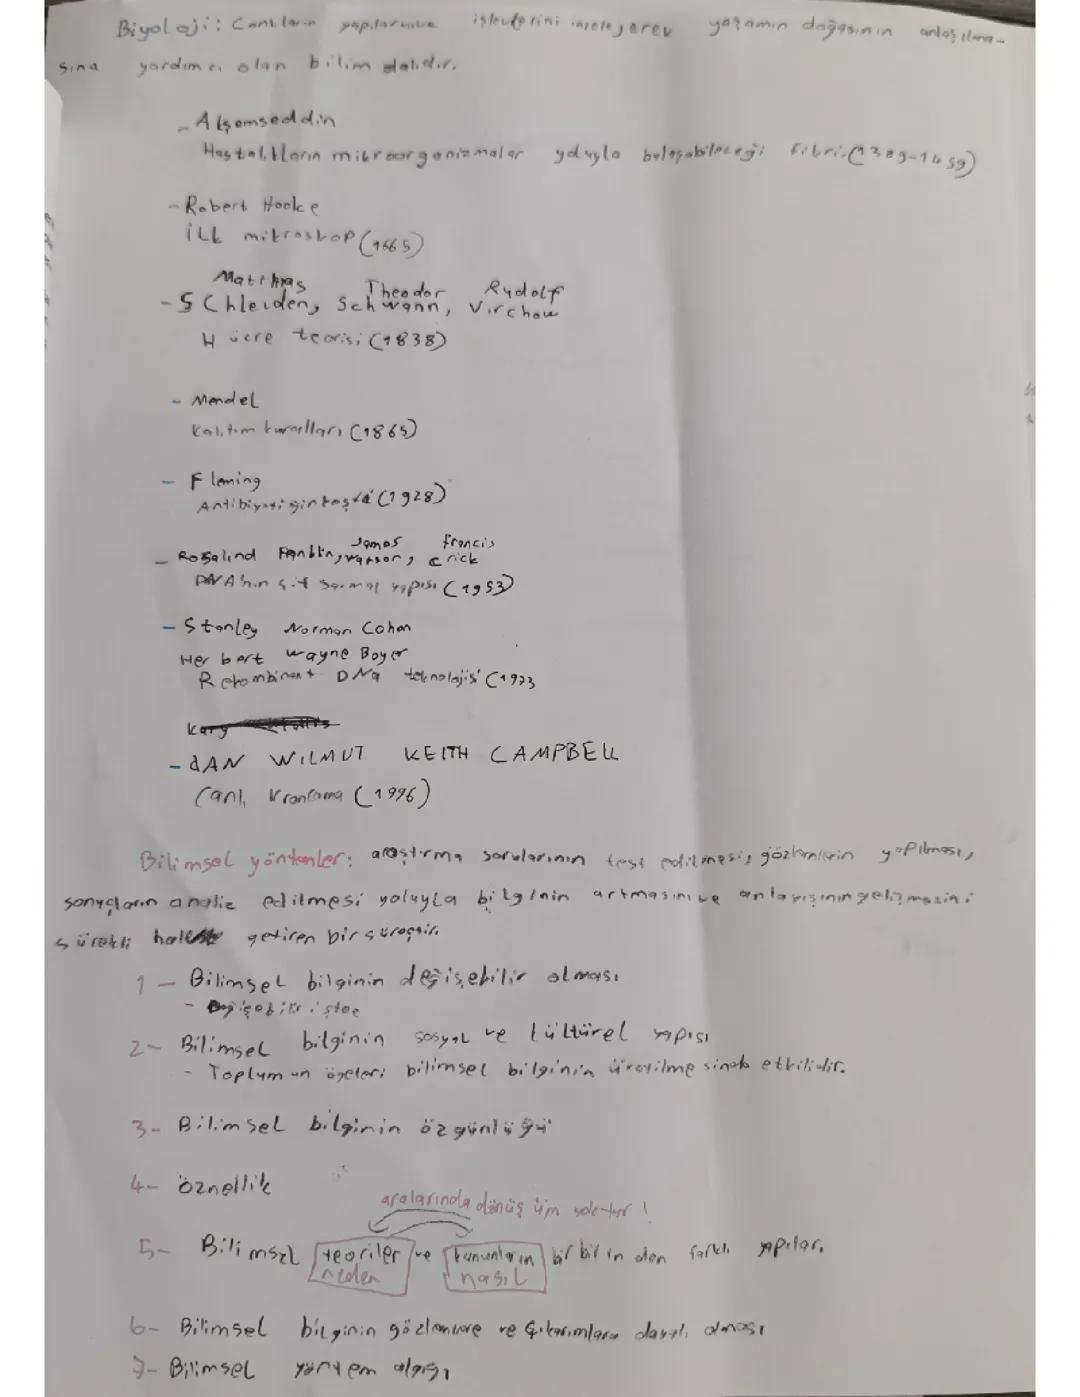 Biyoloji: Canlıların yapılarını ve işlevlerini inceleyerek yaşamın doğasının anlaşılma-
sına yardımcı olan bilim dalıdır.
- Akşemseddin
Hastalıkların mikroorganizmalar yoluyla bulaşabileceği fikri. (1389-1459)
- Robert Hooke
İlk mikroskop (1665)
Matthias Theodor Rudolf
- SChleiden, Schwann, Virchow
Hücre teorisi (1838)
- Mendel
Kalıtım kuralları (1865)
- Fleming
Antibiyotiğin keşfi (1928)
James Francis
- Rosalind Franklin, Watson, Crick
DNA'nın çift sarmal yapısı (1953)
- Stanley Norman Cohen
Herbert Wayne Boyer
Rekombinant DNA teknolojisi (1973
Kary
- IAN WILMUT KEITH CAMPBELL
Canlı Kronlama (1996)
Bilimsel yöntemler: araştırma sorularının test edilmesi, gözlemlerin yapılması,
sonuçların analiz edilmesi yoluyla bilginin artmasını ve anlayışının gelişmesini
sürekli hale getiren bir süreçtir.
1- Bilimsel bilginin değişebilir olması
- Değişebilir işte
2- Bilimsel bilginin sosyal ve kültürel yapısı
- Toplumun ögeleri bilimsel bilginin üretilmesinde etkilidir.
3- Bilimsel bilginin özgünlüğü
4- öznellik
aralarında dönüşüm yoktur!
5- Bilimsel teoriler ve kanunların birbirinden farklı yapılar.
neden nasıl
6- Bilimsel bilginin gözlemlere ve çıkarımlara dayalı olması
7- Bilimsel yöntem algısı